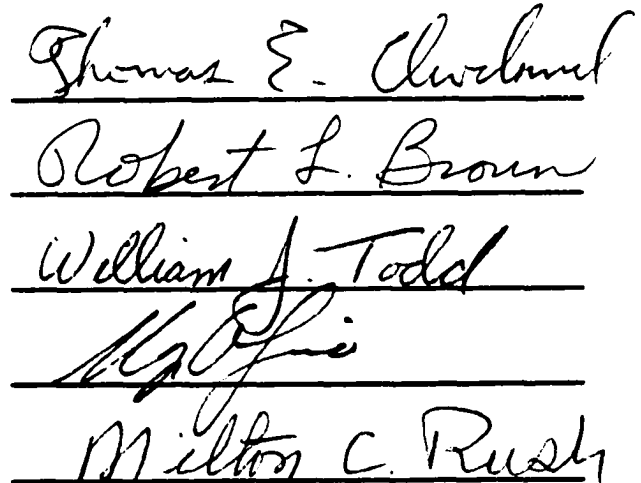 Thomas E. Cleveland
Robert L. Brown
William J. Todd
Milton C. Rush